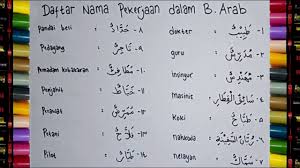 Daftar Nama Pekerjaan dalam B. Arab
dokter طَبِيْبٌ -١
guru مُدَرِّسٌ -٢
insinyur مُهَنْدِسٌ -٣
Masinis سَائِقُ الْقِطَارِ -٤
Koki طَبَّاخٌ -٥
nahkoda رُبَّانُ السَّفِيْنَةِ -٦
nelayan -٧
Pandai besi حَدَّادٌ -٨
Pedagang تَاجِرٌ -٩
Pemadam kebakaran -١٠
Penjahit خَيَّاطٌ -١١
Perawat مُمَرِّضٌ -١٢
Petani فَلَّاحٌ -١٣
Pilot طَيَّارٌ -١٤